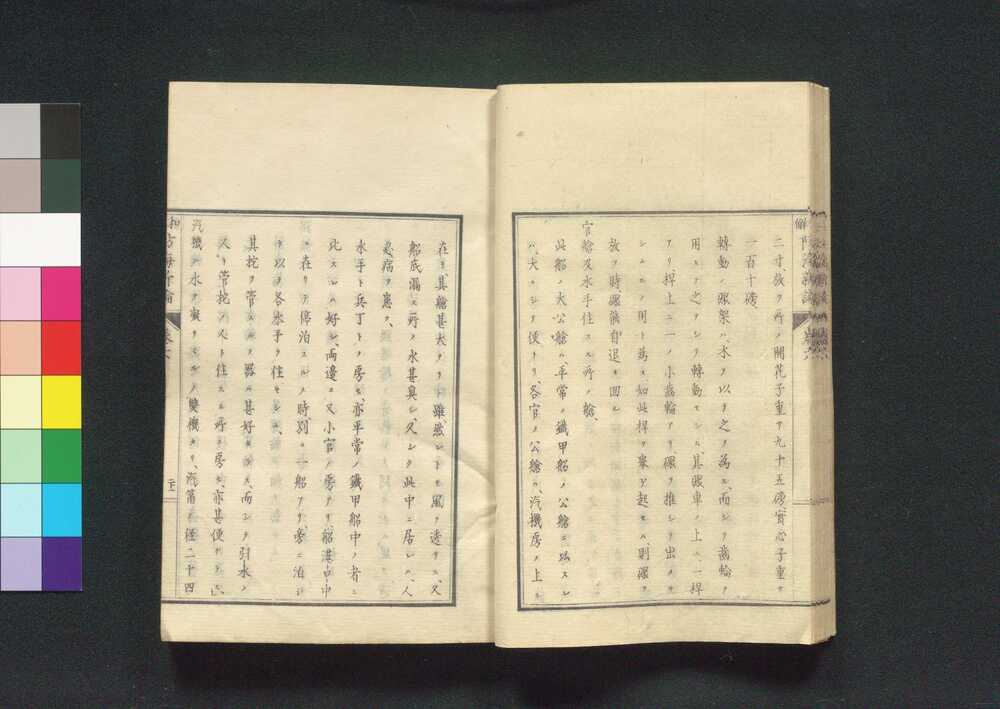 二寸、放ツ所ノ開花子重サ九十五磅、實心子重サ
一百十磅
轉動ノ礮架ハ、木ヲ以テ之ヲ為ル、而シテ齒輪ヲ
用ヒテ之ヲシテ轉動セシム、其礮車ノ上ニ一桿
アリ桿上ニ一ノ小齒輪アリテ礮ヲ推シテ出サ
シムルノ用ト為ス、如此桿ヲ擧ケ起セハ、則礮ヲ
放ツ時、礮能自退キ回ル
官艙及水手住スル所ノ艙
此船ノ大公艙ハ、平常ノ鐵甲船ノ公艙ニ比スレ
ハ、大ニシテ便ナリ、各官ノ公艙ハ、汽機房ノ上ニ
在リ、其艙甚大ナリ雖然レトモ風ヲ透サス、又
船底漏ス所ノ水甚臭シ、久シク此中ニ居レハ、人
必病ヲ患フ、
水手ト兵丁トノ房モ、亦平常ノ鐵甲船中ノ者ニ
比スレハ好シ、両邊ニ又小官ノ房アリ船港口中
ニ在リテ停泊スルノ時、別ニ一船アリ、旁ニ泊シ
テ以テ各水手ヲ住セシム、
其挖ヲ管スルノ器ハ甚好シ、而シテ引水ノ
人ト管挖ノ人ト住スル所ノ房モ、亦甚便ナラス、
汽機 水ヲ凝ラスルノ雙機ナリ、汽筩 徑二十四